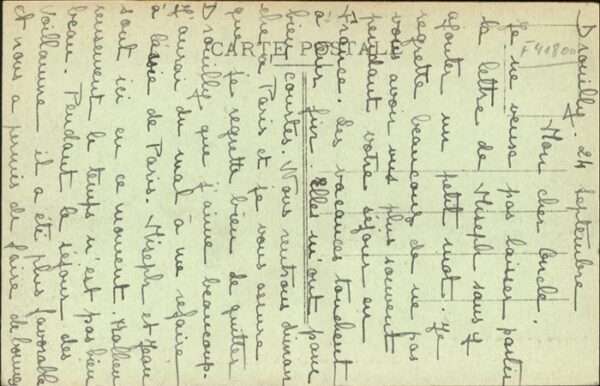 CARTE POSTALE
F 418
Drouilly. 24 septembre
Mon cher Oncle.
Je ne veux pas laisser partir
la lettre de Miseph sans y
ajouter un petit mot. Je
regrette beaucoup de ne pas
vous avoir vus plus souvent
pendant votre séjour en
France. Les vacances touchent
à leur fin. Elles m'ont paru
bien courtes. Nous rentrons diman
che à Paris et je vous assure
que je regrette bien de quitter
Drouilly que j'aime beaucoup.
J'aurai du mal à me refaire
à la vie de Paris. Miseph et Jean
sont ici en ce moment. Malheu
reusement le temps n'est pas bien
beau. Pendant le séjour des
Voillaume il a été plus favorable
et nous a permis de faire de bonnes